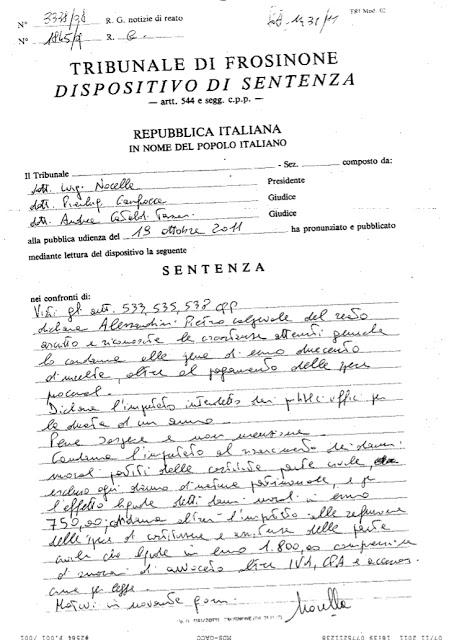 N° 3338/08 R. G. notizie di reato
N° R. G.
TRIBUNALE DI FROSINONE
DISPOSITIVO DI SENTENZA
— artt. 544 e segg. c.p.p. —
REPUBBLICA ITALIANA
IN NOME DEL POPOLO ITALIANO
Il Tribunale - Sez. composto da:
dott. Luigi Nocella Presidente
dott. Giudice
dott. Andrea Giudice
alla pubblica udienza del 19 ottobre 2011 ha pronunziato e pubblicato
mediante lettura del dispositivo la seguente
SENTENZA
nei confronti di:
Visti gli artt. 533, 535, 538 cpp
dichiara Alessandrini Pietro colpevole del reato
ascritto e riconosciute le circostanze attenuanti generiche
lo condanna alla pena di euro duecento
di multa, oltre al pagamento delle spese
process.
Dichiara l'imputato interdetto dai pubblici uffici per
la durata di un anno.
Pena sospesa e non menzione.
Condanna l'imputato al risarcimento dei danni
morali patiti dalla costituita parte civile,
escluso ogni danno di natura patrimoniale, e per
l'effetto liquida detti danni morali in euro
750,00; condanna altresì l'imputato alla refusione
delle spese di costituzione e assistenza della parte
civile che liquida in euro 1.800,00 comprensive
d'avvocato oltre IVA, CPA e accessori
come per legge.
Motivi in novanta giorni.